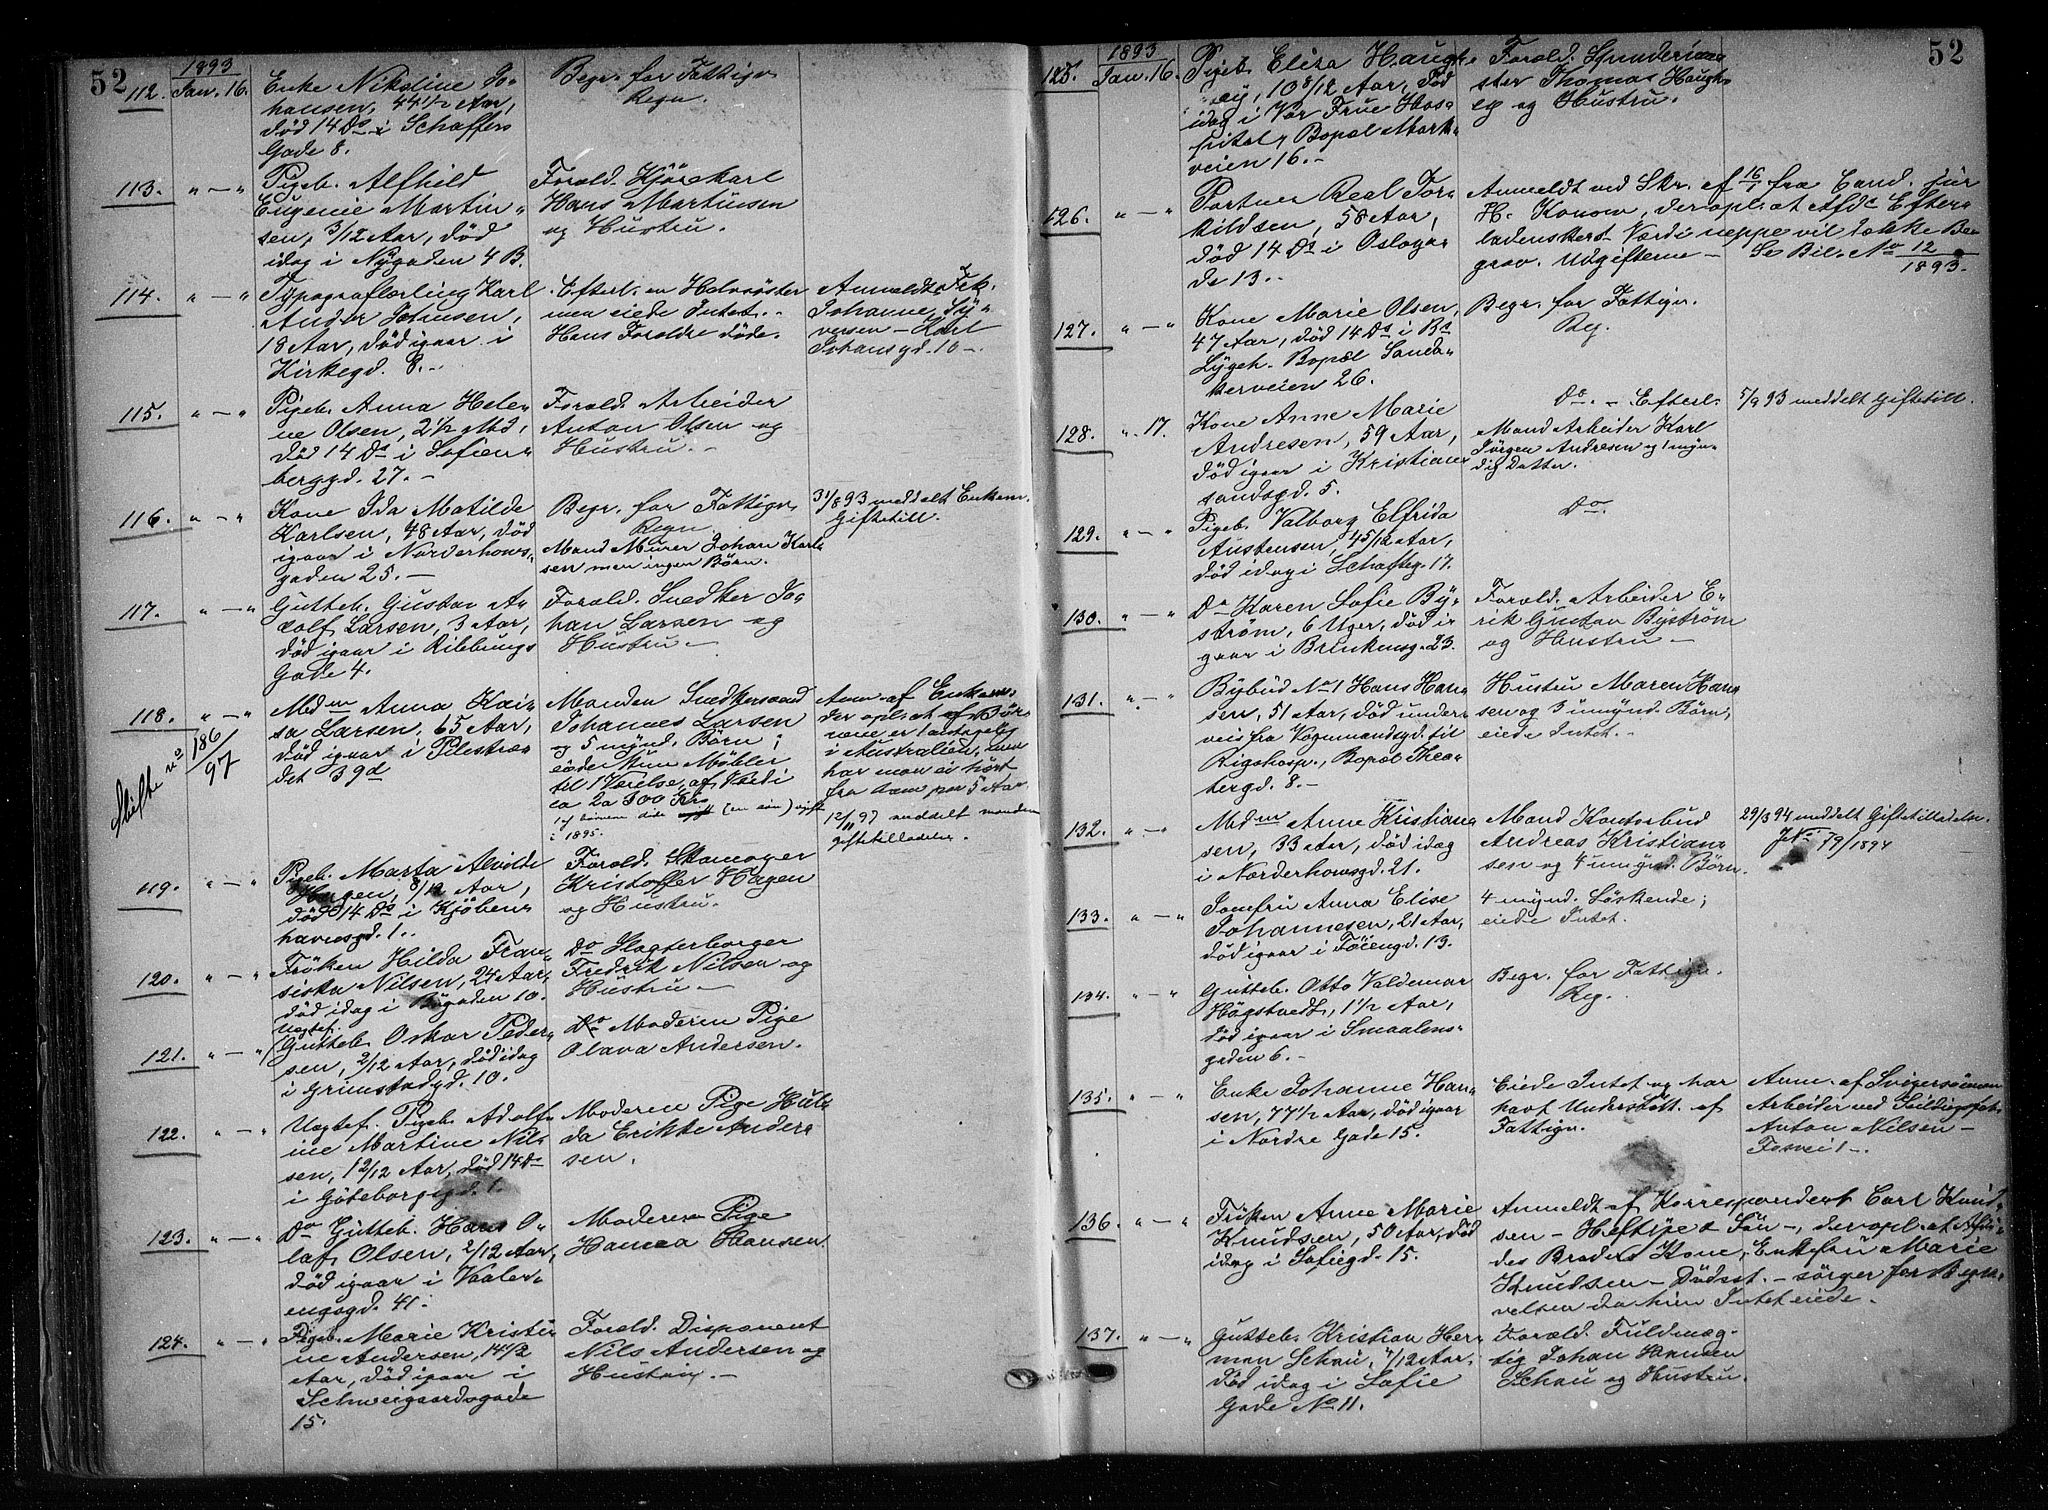 52
1893
112. Jan. 16. Enke Nikoline Jo-
hansen, 44½ Aar,
død 14 Ds i Schaffers
Gade 8.
Begr. for Fattigv.
Regn.
113. " — " Pigeb. Alfhild
Eugenie Martin-
sen, 3/12 Aar, død
idag i Nygaden 4 B.
Foræld. Kjørekarl
Hans Martinsen
og Hustru.
114. " — " Typograflærling Karl
Ander Johnsen,
18 Aar, død igaar i
Kirkegd. 8. —
Efterl. en Halvsøster
men eiede Intet. -
Hans Forældre døde.
Anmeldt Frk.
Johanne Sy-
versen — Karl
Johansgd. 10 —.
115. " — " Pigeb. Anna Hele-
ne Olsen, 2½ Md,
død 14 Ds i Sofien-
berggd. 27. —
Foræld. Arbeider
Anton Olsen og
Hustru. —
116. " — " Kone Ida Matilde
Karlsen, 48 Aar, død
igaar i Norderhovs-
gaden 25. —
Begr. for Fattigv.
Regn.
Mand Murer Johan Karl-
sen men ingen Børn.
31/8 93 meddelt Enkem.
Giftetill.
117. " — " Gutteb. Gustav A-
dolf Larsen, 3 Aar,
død igaar i Ribbungs
Gade 4.
Foræld. Snedker Jo-
han Larsen og
Hustru. —
118. " — " Madm Anna Kai-
sa Larsen, 65 Aar,
død igaar i Pilestræ-
det 39d
Skifte No 186/97
Manden Snedkersvend
Johannes Larsen
og 5 mynd. Børn;
eiede kun Møbler
til 1 Værelse, af Værdi
ca 2 a 300 Kr.
1 af börnene döde (en sön) ugift
i 1895.
Anm. af Enkem.
der opl. at af Bör-
nene er 1 antagelig
i Australien, men
har man ei hört
fra ham paa 5 Aar.
12/11 97 meddelt manden
giftetilladelse.
119. " — " Pigeb. Marta Alvilde
Hagen, 8/12 Aar,
død 14 Ds i Kjøben-
havnsgd. 1. —
Foræld. Skomager
Kristoffer Hagen
og Hustru.
120. " — " Frøken Hilda Fran-
siska Nilsen, 24 Aar,
død idag i Bygaden 10.
Do Slagterborger
Fredrik Nilsen og
Hustru —
121. " — " Uægtef. Gutteb. Oskar Peder-
sen, 2/12 Aar, død idag
i Grimstadgd. 10.
Do Moderen Pige
Olava Andersen.
122. " — " Uægtef. Pigeb. Adolf-
ine Martine Nil-
sen, 1 2/12 Aar, død 14 Ds
i Göteborggd. 1.
Moderen Pige Hul-
da Erikke Ander-
sen.
123. " — " Do Gutteb. Hans O-
laf Olsen, 2/12 Aar,
død igaar i Vaaler-
engagd. 41.
Moderen Pige
Hanna Hansen.
124. " — " Pigeb. Marie Kristi-
ne Andersen, 14½
Aar, død igaar i
Schweigaardsgade
15.
Foræld. Disponent
Nils Andersen og
Hustru. —
52
1893
125. Jan. 16. Pigeb. Eliza Haugh-
ey, 10 8/12 Aar, død
idag i Vor Frue Hos-
pital, Bopæl Mark-
veien 16. —
Foræld. Spinderime-
ster Thomas Haugh-
ey og Hustru.
126. " — " Portner Real Tor-
kildsen, 58 Aar,
død 14 Ds i Oslogа-
de 13. —
Anmeldt ved Skr. af 16/1 fra Cand. jur
H. Konow, der opl. at Afdes Efter-
ladenskabers Værdi neppe vil dække Be-
grav. Udgifterne — Se Bil. No 12/1893.
127. " — " Kone Marie Olsen,
47 Aar, død 14 Ds i Bs
Sygeh. Bopæl Sanda-
kerveien 26.
Begr. for Fattigv.
Reg.
128. " 17. Kone Anne Marie
Andresen, 59 Aar,
død igaar i Kristian-
sandsgd. 5.
Do. — Efterl.
Mand Arbeider Karl
Jørgen Andresen og 1 myn-
dig Datter.
5/9 93 meddelt Giftetill.
129. " — " Pigeb. Valborg Elfrida
Austensen, 4 5/12 Aar,
død idag i Schafteg. 17.
Do.
130. " — " Do Karen Sofie By-
strøm, 6 Uger, død i-
gaar i Brinkensg. 23.
Foræld. Arbeider E-
rik Gustav Byström
og Hustru —
131. " — " Bybud No 1 Hans Han-
sen, 51 Aar, død under-
veis fra Vognmandsgd. til
Rigshosp., Bopæl Thea-
tergd. 8. —
Hustru Maren Han-
sen og 3 umynd. Börn,
eiede Intet. —
132. " — " Madm Anne Kristian-
sen, 33 Aar, død idag
i Norderhovsgd. 21.
Mand Kontorbud
Andreas Kristian-
sen og 4 umynd. Börn.
29/3 94 meddelt Giftetilladelse.
J.No 79/1894
133. " — " Jomfru Anna Elise
Johannesen, 21 Aar,
død igaar i Töiengd. 13.
4 mynd. Söskende;
eiede Intet.
134. " — " Gutteb. Otto Valdemar
Högstvedt, 1½ Aar,
død igaar i Smaalens-
gaden 6. —
Begr. for Fattigv.
Reg.
135. " — " Enke Johanne Han-
sen, 77½ Aar, død igaar
i Nordre Gade 15.
Eiede Intet og har
havt Understött. af
Fattigv.
Anm. af Svigersönnen
Arbeider ved Seildugsfab.
Anton Nilsen —
Fosvei 1 —.
136. " — " Fröken Anne Marie
Knudsen, 50 Aar, død
idag i Sofiegd. 15.
Anmeldt af Korrespondent Carl Knud-
sen — Heftye & Sön —, der opl. at Afdö-
des Broders Kone, Enkefru Marie
Knudsen — Dödsst. — sörger for Begra-
velsen da hun Intet eiede.
137. " — " Gutteb. Kristian Her-
man Schou, 4/12 Aar,
död idag i Sofie
Gade No 11.
Foræld. Fuldmæg-
tig Johan Hansen
Schou og Hustru.